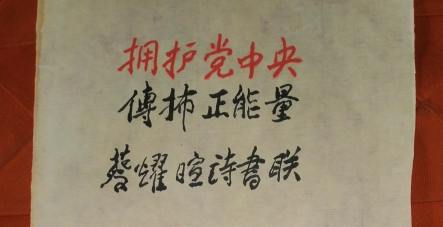 拥护党中央
傳抪正能量
蔡耀暄诗書联